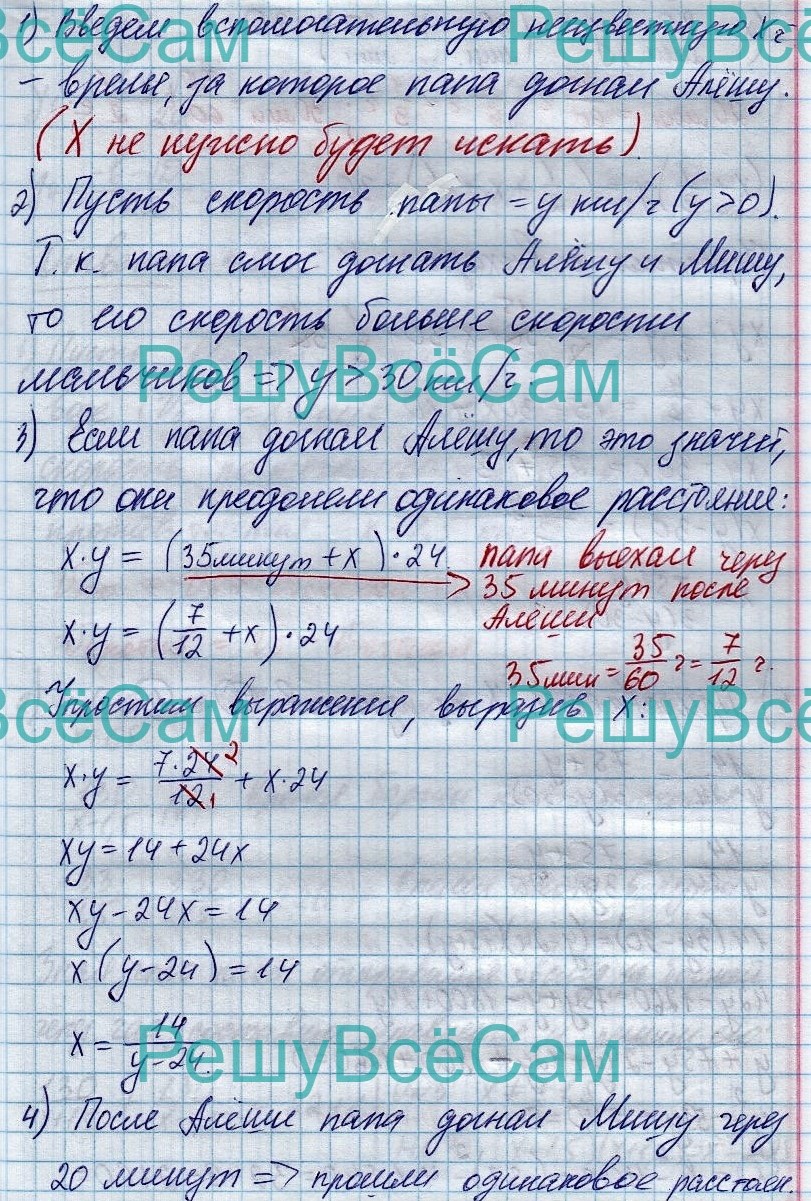 1) Введем вспомогательную неизвестную Xч
– время, за которое папа догнал Алёшу.
(X не нужно будет искать)
2) Пусть скорость папы = y км/ч (y>0).
Т.к. папа смог догнать Алёшу и Мишу,
то его скорость больше скорости
мальчиков => y > 30 км/ч.
3) Если папа догнал Алёшу, то это значит,
что они преодолели одинаковое расстояние:
x·y = (35минут + x)·24. папа выехал через
35 минут после
Алёши
x·y = (7/12 + x)·24
35мин = 35/60 ч = 7/12 ч.
Упростим выражение, выразив X:
x·y = 7·24 2/12 1 + x·24
xy = 14 + 24x
xy – 24x = 14
x(y – 24) = 14
x = 14/y – 24.
4) После Алёши папа догнал Мишу через
20 минут => прошли одинаковое расстоян.
РешуВсёСам
РешуВсёСам
РешуВсёСам
РешуВсёСам
РешуВсёСам
РешуВсёСам